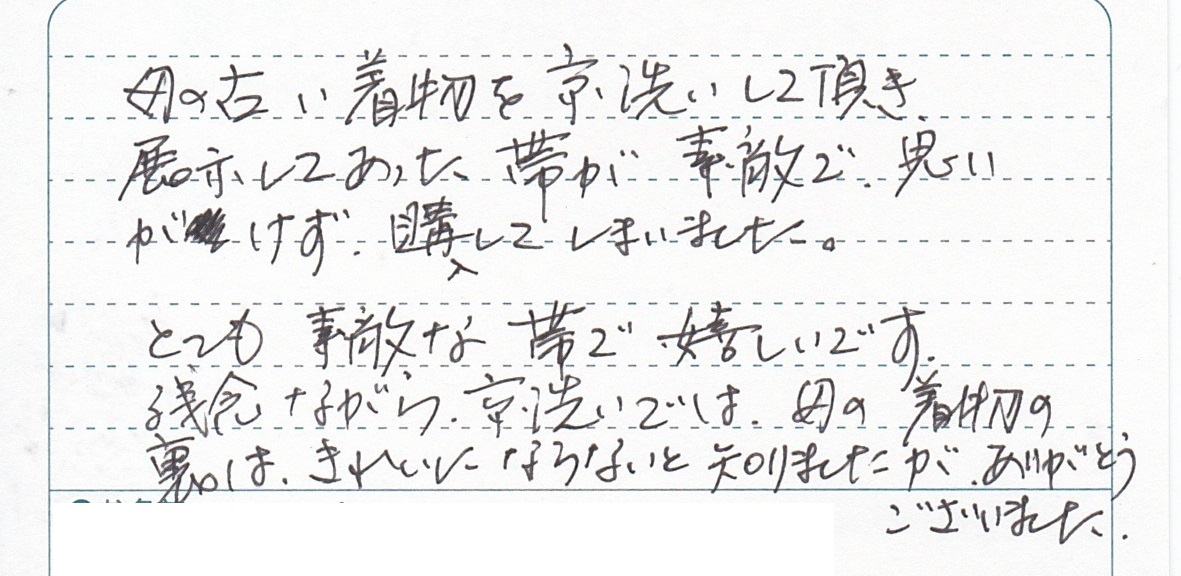 母の古い着物を京洗いして頂き、
展示してあった帯が素敵で、思い
がけず、購入してしまいました。
とても素敵な帯で嬉しいです。
残念ながら、京洗いでは、母の着物の
裏は、きれいにならないと知りましたが、ありがとう
ございました。